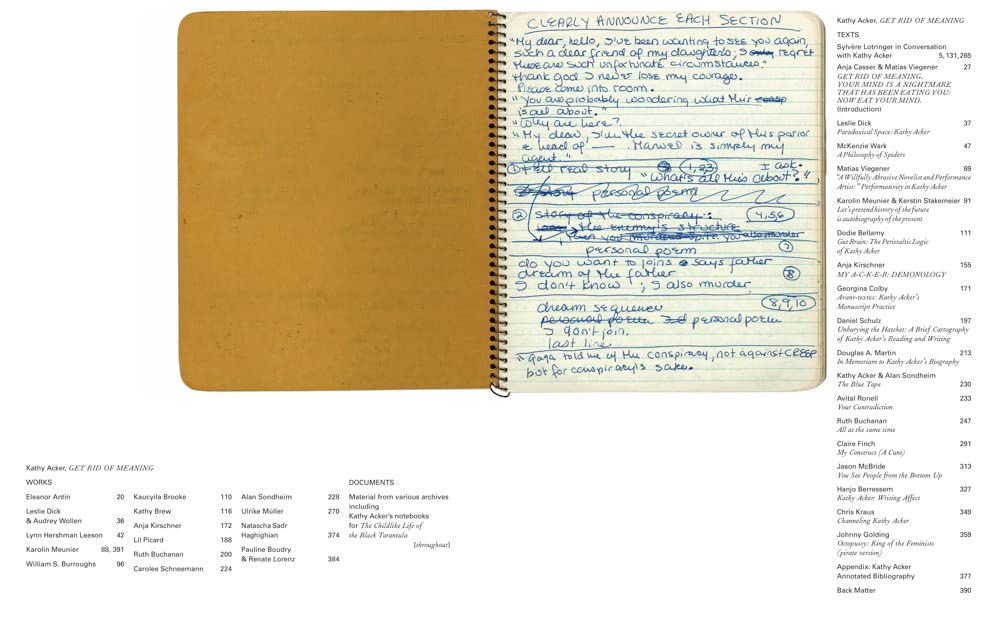 CLEARLY ANNOUNCE EACH SECTION
"My dear, hello, I've been wanting to see you again,
such a dear friend of my daughters; I only regret
these are such unfortunate circumstances."
thank god I never lose my courage.
Please come into room.
"You are probably wondering what this
is all about."
"Why are here?
"My dear, I'm the secret owner of this parlor
& head of — . Marvel is simply my
agent."
① tell real story 1,2,3 I ask.
"What's all this about?"
story personal poem
② story of the conspiracy: 4,5,6
the enemy's structure
then you murdered spite you also murder
personal poem ⑦
do you want to join says father
dream of the father ⑧
I don't know!; I also murder
dream sequence 8,9,10
personal poem 3rd personal poem
I don't join.
last line
"Gaga told me of the conspiracy, not against CREEP
but for conspiracy's sake.
Kathy Acker, GET RID OF MEANING
TEXTS
Sylvère Lotringer in Conversation
with Kathy Acker 5, 131, 265
Anja Casser & Matias Viegener 27
GET RID OF MEANING.
YOUR MIND IS A NIGHTMARE
THAT HAS BEEN EATING YOU:
NOW EAT YOUR MIND.
(Introduction)
Leslie Dick 37
Paradoxical Space: Kathy Acker
McKenzie Wark 47
A Philosophy of Spiders
Matias Viegener 69
"A Willfully Abrasive Novelist and Performance
Artist:" Performativity in Kathy Acker
Karolin Meunier & Kerstin Stakemeier 91
Let's pretend history of the future
is autobiography of the present
Dodie Bellamy 111
Gut Brain: The Peristaltic Logic
of Kathy Acker
Anja Kirschner 155
MY A-C-K-E-R: DEMONOLOGY
Georgina Colby 171
Avant-textes: Kathy Acker's
Manuscript Practice
Daniel Schulz 197
Unburying the Hatchet: A Brief Cartography
of Kathy Acker's Reading and Writing
Douglas A. Martin 213
In Memoriam to Kathy Acker's Biography
Kathy Acker & Alan Sondheim
The Blue Tape 230
Avital Ronell 233
Your Cuntradiction
Ruth Buchanan 247
All at the same time
Claire Finch 291
My Construct (A Cunt)
Jason McBride 313
You See People from the Bottom Up
Hanjo Berressem 327
Kathy Acker: Writing Affect
Chris Kraus 349
Channeling Kathy Acker
Johnny Golding 359
Octopussy: King of the Feminists
(pirate version)
Appendix: Kathy Acker
Annotated Bibliography 377
Back Matter 390
Kathy Acker, GET RID OF MEANING
WORKS
Eleanor Antin 20
Leslie Dick
& Audrey Wollen 36
Lynn Hershman Leeson 42
Karolin Meunier 88, 391
William S. Burroughs 96
Kaucyila Brooke 110
Kathy Brew 116
Anja Kirschner 172
Lil Picard 188
Ruth Buchanan 200
Carolee Schneemann 224
Alan Sondheim 228
Ulrike Müller 270
Natascha Sadr
Haghighian 374
Pauline Boudry
& Renate Lorenz 384
DOCUMENTS
Material from various archives
including
Kathy Acker's notebooks
for The Childlike Life of
the Black Tarantula
[throughout]